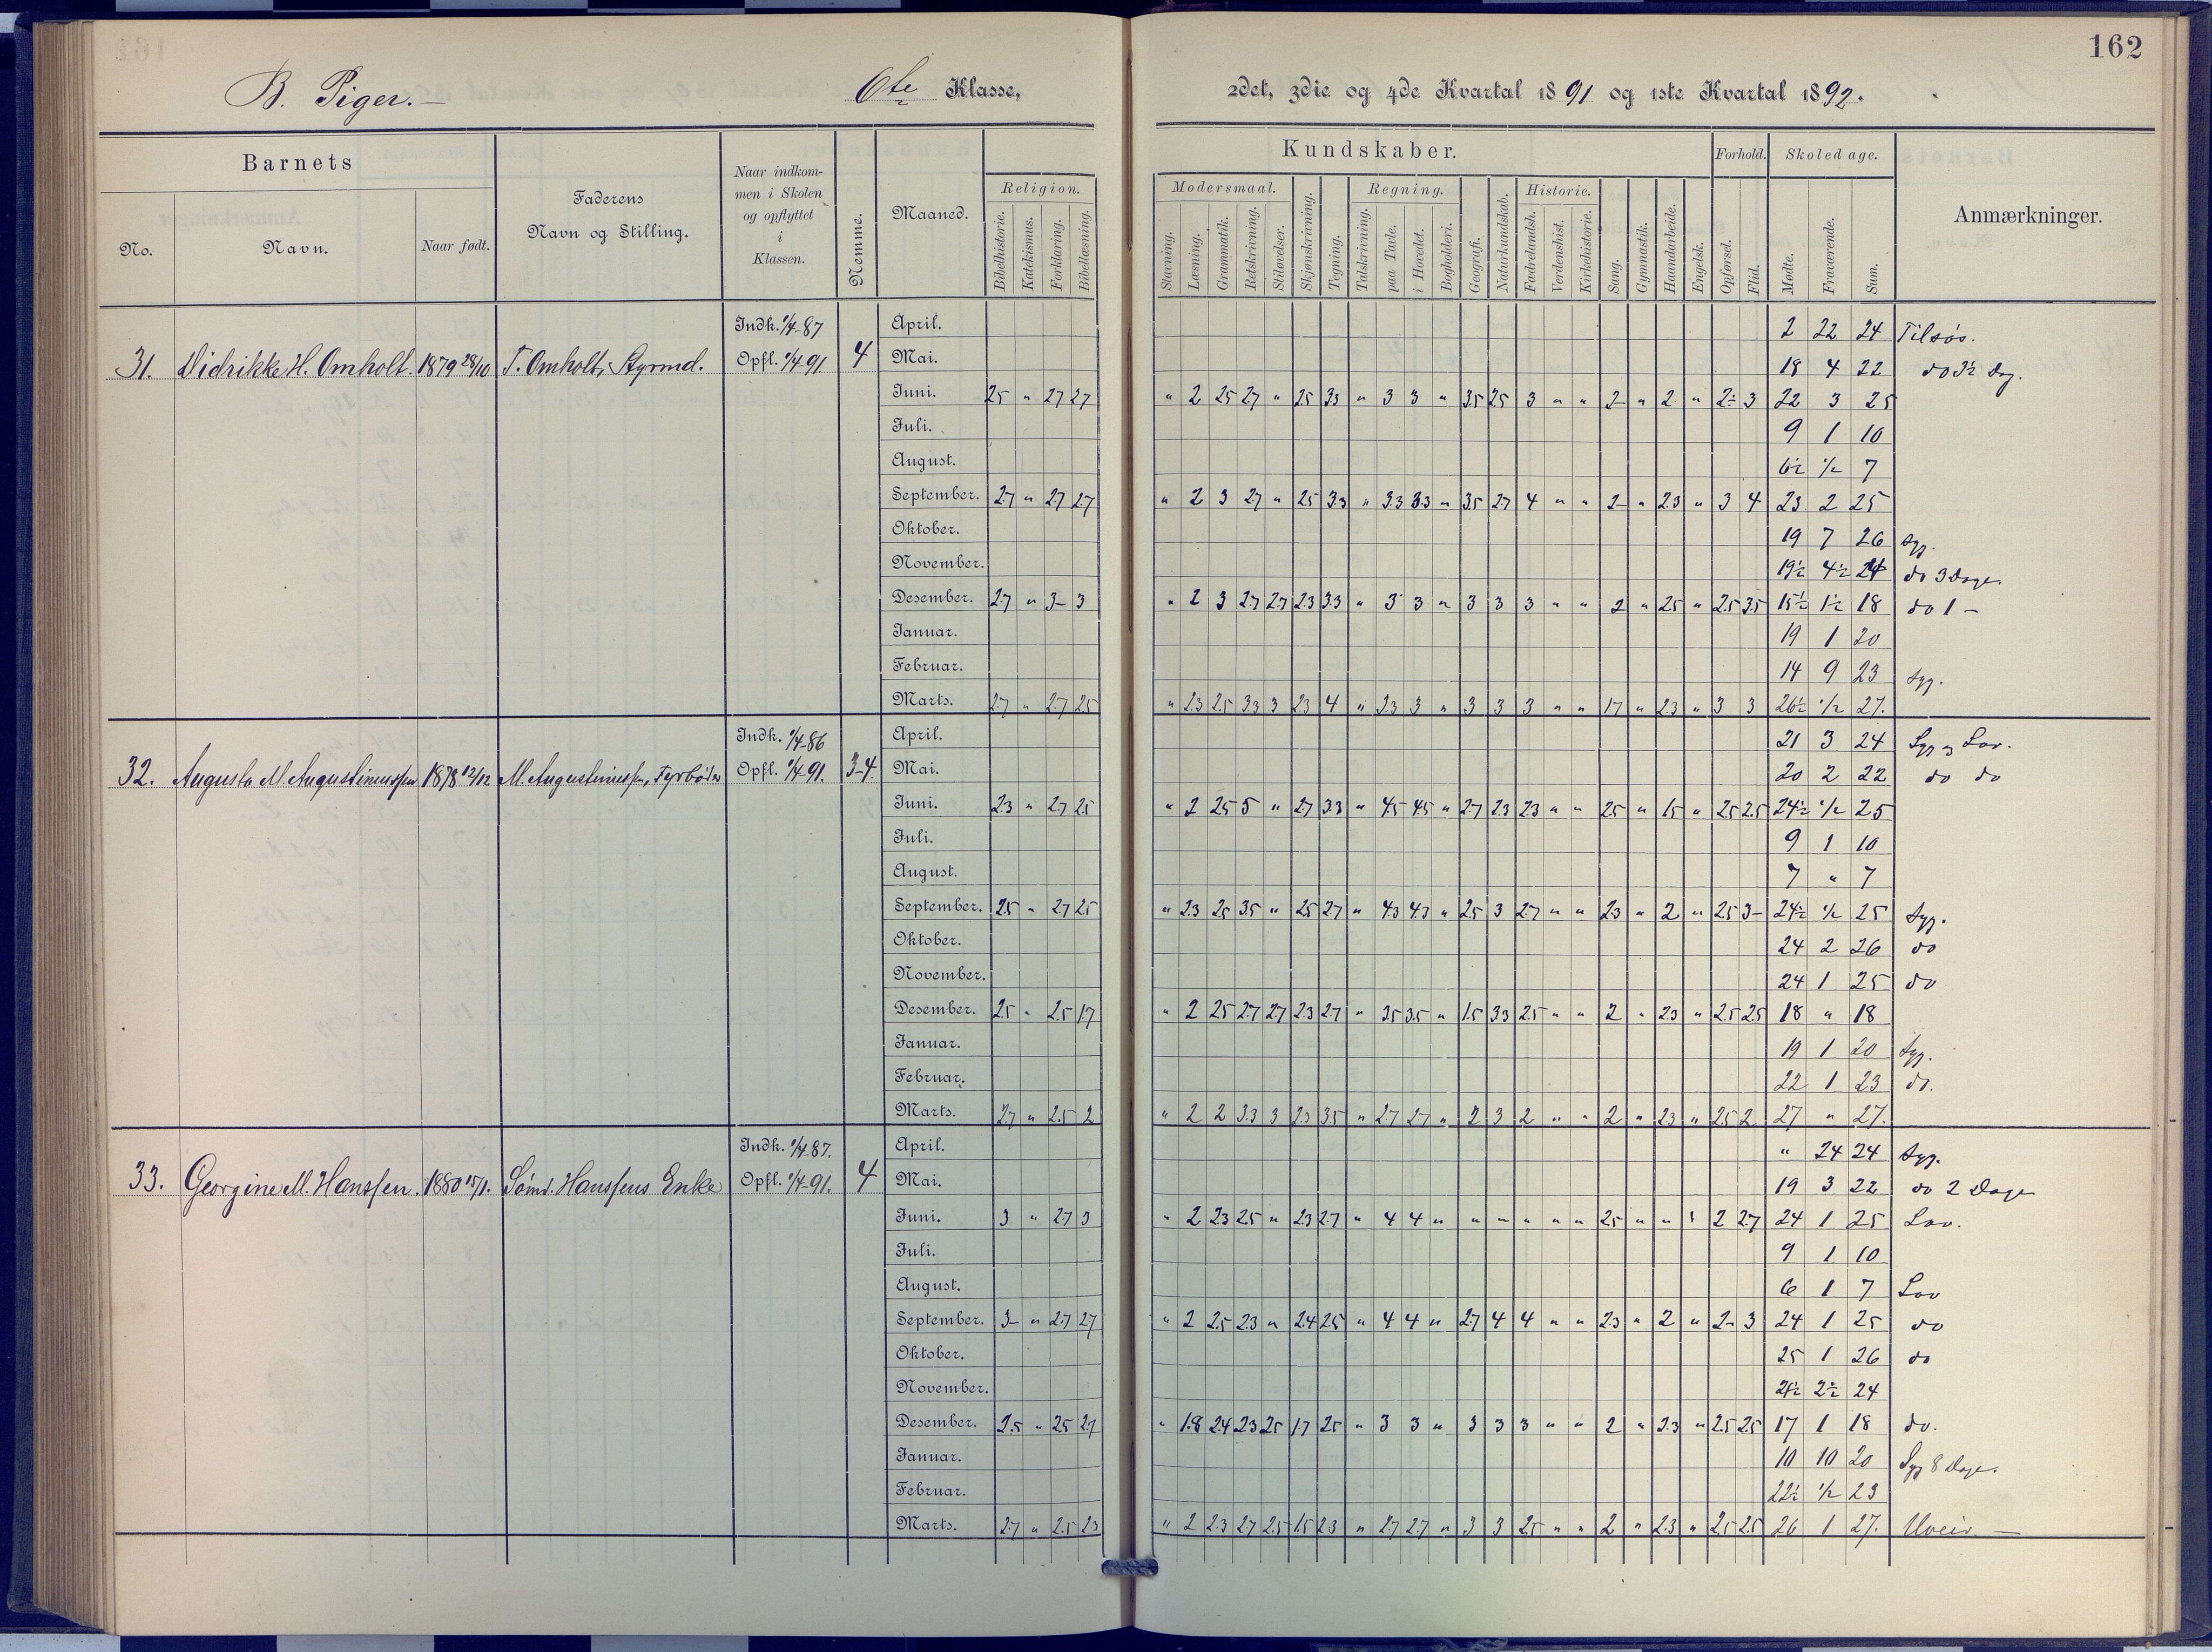 162
B. Piger. —
6te Klasse,
2det, 3die og 4de Kvartal 1891 og 1ste Kvartal 1892.
Barnets
No.
Navn.
Naar født.
Faderens
Navn og Stilling.
Naar indkom-
men i Skolen
og opflyttet
i
Klassen.
Nemme.
Maaned.
Kundskaber.
Religion.
Bibelhistorie.
Katekismus.
Forklaring.
Bibellæsning.
Modersmaal.
Stavning.
Læsning.
Grammatik.
Retskrivning.
Stiløvelser.
Skjønskrivning.
Tegning.
Regning.
Talskrivning.
paa Tavle.
i Hovedet.
Bogholderi.
Geografi.
Naturkundskab.
Historie.
Fædrelandsh.
Verdenshist.
Kirkehistorie.
Sang.
Gymnastik.
Haandarbeide.
Engelsk.
Forhold.
Opførsel.
Flid.
Skoledage.
Mødte.
Fraværende.
Sum.
Anmærkninger.
31. Didrikke H. Omholt. 1879 28/10 T. Omholt, Styrmd. Indk. 1/4-87 Opfl. 1/4 91 4
April. 2 22 24 Tilsøs.
Mai. 18 4 22 do 3½ Dag.
Juni. 25 " 27 27 " 2 25 27 " 25 33 " 3 3 " 35 25 3 " " 2- " 2 " 2÷ 3 22 3 25
Juli. 9 1 10
August. 6½ ½ 7
September. 27 " 27 27 " 2 3 27 " 25 33 " 33 33 " 35 27 4 " " 2- " 23 " 3 4 23 2 25
Oktober. 19 7 26 Syg.
November. 19½ 4½ 24 do 3 Dage.
Desember. 27 " 3- 3 " 2 3 27 27 23 33 " 3 3 " 3 3 3 " " 2 " 25 " 25 35 15½ 1½ 18 do 1 —
Januar. 19 1 20
Februar. 14 9 23 Syg.
Marts. 27 " 27 25 " 23 25 33 3 23 4 " 33 3 " 3 3 3 " " 17 " 23 " 3 3 26½ ½ 27.
32. Augusta M. Augustinussen 1878 12/12 M. Augustinussen, Fyrbøder Indk. 1/4-86 Opfl. 1/4 91. 3-4.
April. 21 3 24 Syg og Lov.
Mai. 20 2 22 do do
Juni. 23 " 27 25 " 2 25 5 " 27 33 " 45 45 " 27 23 23 " " 25 " 15 " 25 25 24½ ½ 25
Juli. 9 1 10
August. 7 " 7
September. 25 " 27 25 " 23 25 35 " 25 27 " 43 43 " 25 3 27 " " 23 " 2 " 25 3- 24½ ½ 25 Syg.
Oktober. 24 2 26 do
November. 24 1 25 do
Desember. 25 " 25 17 " 2 25 27 27 23 27 " 35 35 " 15 33 25 " " 2 " 23 " 25 25 18 " 18
Januar. 19 1 20 Syg.
Februar. 22 1 23 do.
Marts. 27 " 25 2 " 2 2 33 3 23 35 " 27 27 " 2 3 2 " " 2 " 23 " 25 2 27 " 27.
33. Georgine M. Hanssen. 1880 15/1. Sømd. Hanssens Enke Indk. 1/4 87. Opfl. 1/4-91. 4
April. " 24 24 Syg.
Mai. 19 3 22 do 2 Dage
Juni. 3 " 27 3 " 2 23 25 " 23 27 " 4 4 " " " " " " 25 " " " 2 27 24 1 25 Lov.
Juli. 9 1 10
August. 6 1 7 Lov
September. 3- " 27 27 " 2 25 23 " 24 25 " 4 4 " 27 4 4 " " 23 " 2 " 2- 3 24 1 25 do
Oktober. 25 1 26 do
November. 21½ 2½ 24
Desember. 25 " 25 27 " 18 24 23 25 17 25 " 3 3 " 3 3 3 " " 2 " 23 " 25 25 17 1 18 do.
Januar. 10 10 20 Syg 8 Dage.
Februar. 22½ ½ 23
Marts. 27 " 25 23 " 2 23 27 25 15 23 " 27 27 " 3 3 25 " " 2 " 23 " 25 25 26 1 27. Uveir. —